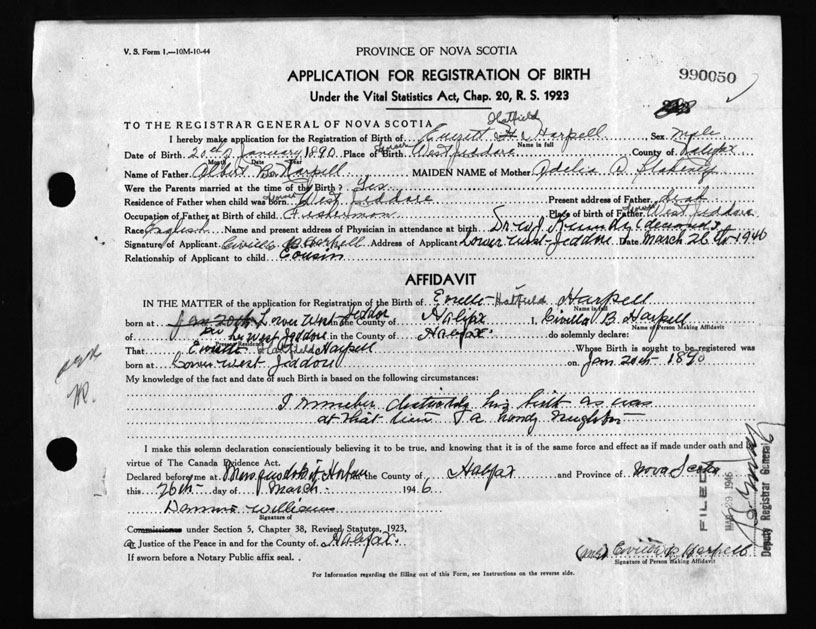 V. S. Form 1.—10M-10-44
PROVINCE OF NOVA SCOTIA
APPLICATION FOR REGISTRATION OF BIRTH
990050
Under the Vital Statistics Act, Chap. 20, R. S. 1923
Hatfield
TO THE REGISTRAR GENERAL OF NOVA SCOTIA
I hereby make application for the Registration of Birth of Everett H. Harpell Sex Male
Name in full
Date of Birth 20th of January 1890 Place of Birth Lower West Jeddore County of Halifax
Name of Father Albert Harpell MAIDEN NAME of Mother Adelia
Were the Parents married at the time of the Birth? Yes
Residence of Father when child was born Lower West Jeddore Present address of Father dead
Occupation of Father at Birth of child Fisherman Place of birth of Father Lower West Jeddore
Race English Name and present address of Physician in attendance at birth
Signature of Applicant Civilla B Harpell Address of Applicant Lower West Jeddore Date March 26th 1946
Relationship of Applicant to child Cousin
AFFIDAVIT
IN THE MATTER of the application for Registration of the Birth of Hatfield Harpell
Name in full
born at Jan 20th Lower West Jeddore in the County of Halifax I, Civilla B. Harpell
Name of Person Making Affidavit
of West Jeddore in the County of Halifax do solemnly declare:
Present Residence
That Everett Hatfield Harpell Whose Birth is sought to be registered was
born at Lower West Jeddore on Jan 20th 1890
My knowledge of the fact and date of such Birth is based on the following circumstances:
I his birth as was
at that time a
I make this solemn declaration conscientiously believing it to be true, and knowing that it is of the same force and effect as if made under oath and by
virtue of The Canada Evidence Act.
Declared before me at in the County of Halifax and Province of Nova Scotia
this 26th day of March 1946
Signature of
Commissioner under Section 5, Chapter 38, Revised Statutes, 1923,
or Justice of the Peace in and for the County of Halifax.
If sworn before a Notary Public affix seal.
FILED
MAR 29 1946
Deputy Registrar General
(Mrs) Civilla B Harpell
Signature of Person Making Affidavit
For Information regarding the filling out of this Form, see Instructions on the reverse side.